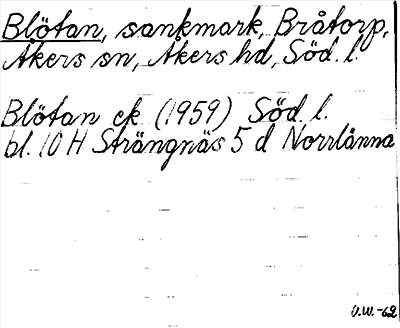 Blötan, sankmark, Bråtorp,
Åkers sn, Åkers hd, Söd. l.
Blötan ek (1959) Söd. l.
bl. 10 H Strängnäs 5 d Norrlänna
U.W.-62